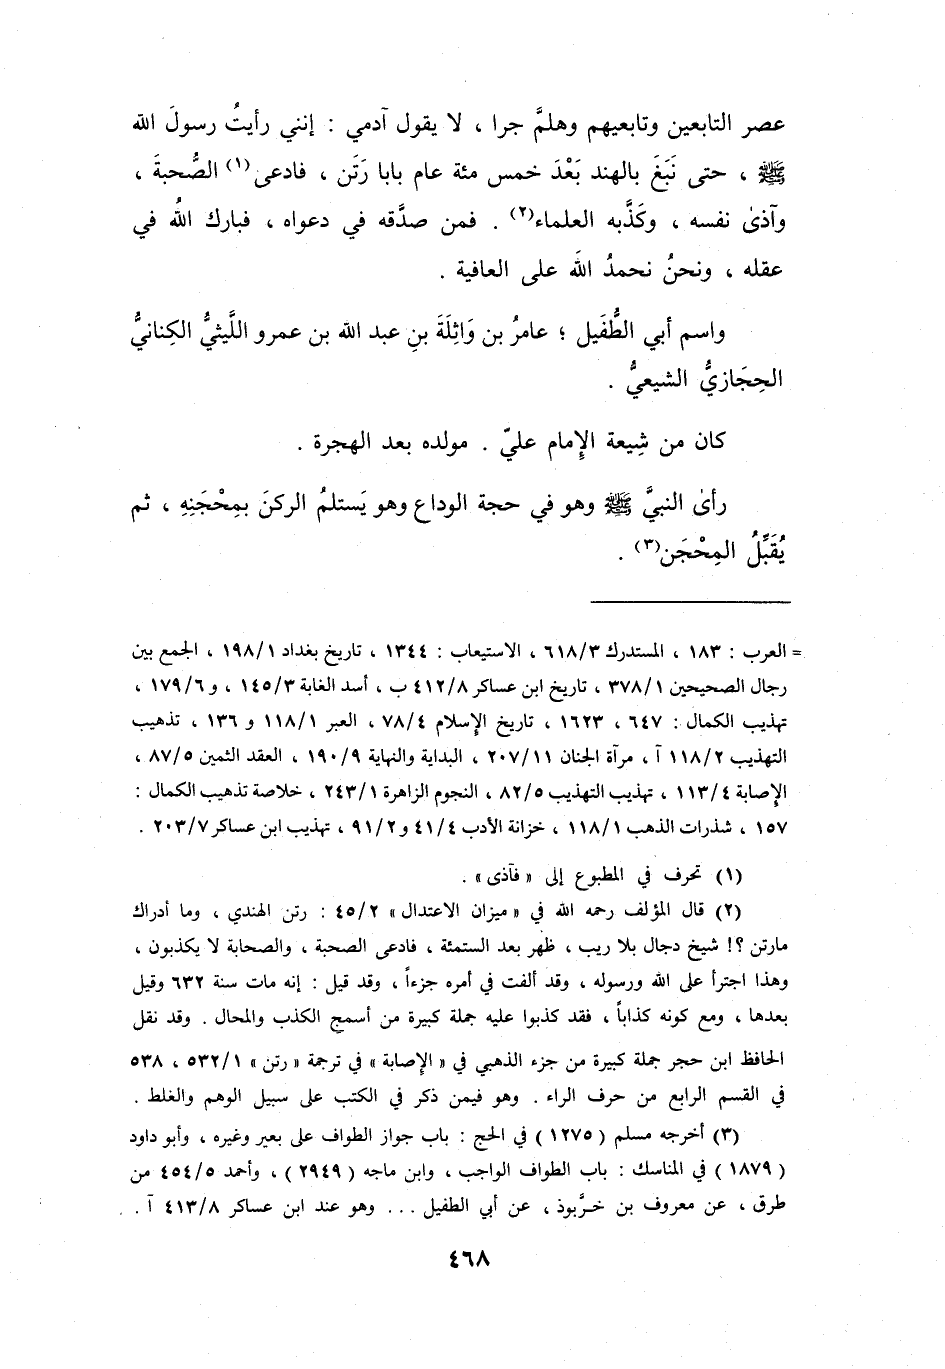 عصر التابعين وتابعيهم وهلمَّ جرا ، لا يقول آدمي : إنني رأيتُ رسولَ الله
ﷺ ، حتى نَبَغَ بالهند بَعْدَ خمس مئة عام بابا رَتَن ، فادعى(١) الصُّحبةَ ،
وآذىٰ نفسه ، وكَذَّبه العلماء(٢) . فمن صدَّقه في دعواه ، فبارك اللهُ في
عقله ، ونحنُ نحمدُ اللهَ على العافية .
واسم أبي الطُّفَيل ؛ عامرُ بن وَاثِلَةَ بنِ عبد الله بن عمرو اللَّيثيُّ الكِنانيُّ
الحِجَازيُّ الشيعيُّ .
كان من شِيعة الإِمام عليّ . مولده بعد الهجرة .
رأىٰ النبيَّ ﷺ وهو في حجة الوداع وهو يَستلمُ الركنَ بمِحْجَنِهِ ، ثم
يُقَبِّلُ المِحْجَن(٣) .
= العرب : ١٨٣ ، المستدرك ٦١٨/٣ ، الاستيعاب : ١٣٤٤ ، تاريخ بغداد ١٩٨/١ ، الجمع بين
رجال الصحيحين ٣٧٨/١ ، تاريخ ابن عساكر ٤١٢/٨ ب ، أسد الغابة ١٤٥/٣ ، و ١٧٩/٦ ،
تهذيب الكمال : ٦٤٧ ، ١٦٢٣ ، تاريخ الإِسلام ٧٨/٤ ، العبر ١١٨/١ و ١٣٦ ، تذهيب
التهذيب ١١٨/٢ آ ، مرآة الجنان ٢٠٧/١١ ، البداية والنهاية ١٩٠/٩ ، العقد الثمين ٨٧/٥ ،
الإِصابة ١١٣/٤ ، تهذيب التهذيب ٨٢/٥ ، النجوم الزاهرة ٢٤٣/١ ، خلاصة تذهيب الكمال :
١٥٧ ، شذرات الذهب ١١٨/١ ، خزانة الأدب ٤١/٤ و ٩١/٢ ، تهذيب ابن عساكر ٢٠٣/٧ .
(١) تحرف في المطبوع إلى « فآذى » .
(٢) قال المؤلف رحمه الله في « ميزان الاعتدال » ٤٥/٢ : رتن الهندي ، وما أدراك
مارتن ؟! شيخ دجال بلا ريب ، ظهر بعد الستمئة ، فادعى الصحبة ، والصحابة لا يكذبون ،
وهذا اجترأ على الله ورسوله ، وقد ألفت في أمره جزءاً ، وقد قيل : إنه مات سنة ٦٣٢ وقيل
بعدها ، ومع كونه كذاباً ، فقد كذبوا عليه جملة كبيرة من أسمج الكذب والمحال . وقد نقل
الحافظ ابن حجر جملة كبيرة من جزء الذهبي في « الإِصابة » في ترجمة « رتن » ٥٣٢/١ ، ٥٣٨
في القسم الرابع من حرف الراء . وهو فيمن ذكر في الكتب على سبيل الوهم والغلط .
(٣) أخرجه مسلم ( ١٢٧٥ ) في الحج : باب جواز الطواف على بعير وغيره ، وأبو داود
( ١٨٧٩ ) في المناسك : باب الطواف الواجب ، وابن ماجه ( ٢٩٤٩ ) ، وأحمد ٤٥٤/٥ من
طرق ، عن معروف بن خرَّبوذ ، عن أبي الطفيل ... وهو عند ابن عساكر ٤١٣/٨ آ .
٤٦٨